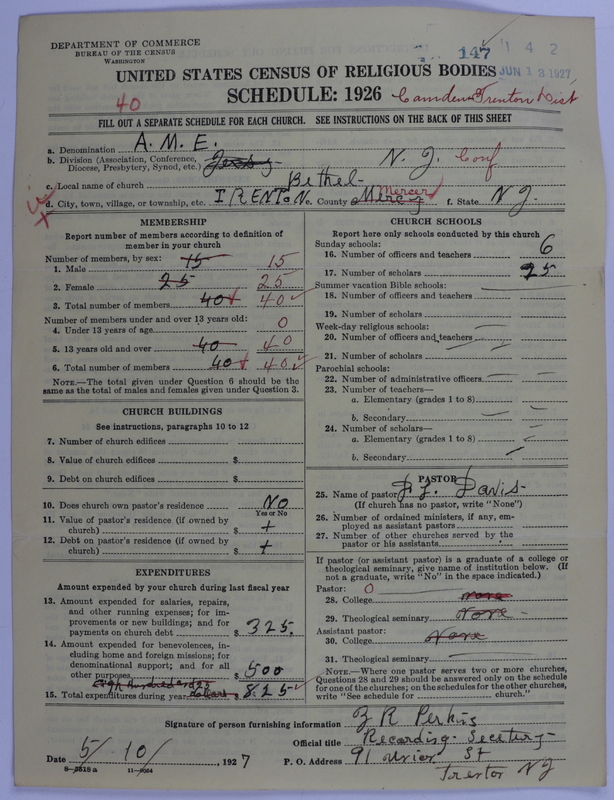 DEPARTMENT OF COMMERCE
BUREAU OF THE CENSUS
WASHINGTON
147 142
JUN 13 1927
UNITED STATES CENSUS OF RELIGIOUS BODIES
SCHEDULE: 1926
40
Camden Trenton Dist
FILL OUT A SEPARATE SCHEDULE FOR EACH CHURCH. SEE INSTRUCTIONS ON THE BACK OF THIS SHEET
a. Denomination A. M. E.
b. Division (Association, Conference, Diocese, Presbytery, Synod, etc.) N. J. Conf
c. Local name of church Bethel
d. City, town, village, or township, etc. TRENTON e. County Mercer f. State N J.
MEMBERSHIP
Report number of members according to definition of
member in your church
Number of members, by sex:
1. Male 15 15
2. Female 25 25
3. Total number of members 40 40
Number of members under and over 13 years old:
4. Under 13 years of age 0
5. 13 years old and over 40 40
6. Total number of members 40 40
NOTE.—The total given under Question 6 should be
same as the total of males and females given under Question 3.
CHURCH BUILDINGS
See instructions, paragraphs 10 to 12
7. Number of church edifices
8. Value of church edifices $
9. Debt on church edifices $
10. Does church own pastor's residence No
Yes or No
11. Value of pastor's residence (if owned by
church) $ +
12. Debt on pastor's residence (if owned by
church) $ +
EXPENDITURES
Amount expended by your church during last fiscal year
13. Amount expended for salaries, repairs,
and other running expenses; for im-
provements or new buildings; and for
payments on church debt $ 325.
14. Amount expended for benevolences, in-
cluding home and foreign missions; for
denominational support; and for all
other purposes $ 500
15. Total expenditures during year $ 825
CHURCH SCHOOLS
Report here only schools conducted by this church
Sunday schools:
16. Number of officers and teachers 6
17. Number of scholars 25
Summer vacation Bible schools:
18. Number of officers and teachers
19. Number of scholars
Week-day religious schools:
20. Number of officers and teachers
21. Number of scholars
Parochial schools:
22. Number of administrative officers
23. Number of teachers—
a. Elementary (grades 1 to 8)
b. Secondary
24. Number of scholars—
a. Elementary (grades 1 to 8)
b. Secondary
PASTOR
25. Name of pastor Davis
(If church has no pastor, write "None")
26. Number of ordained ministers, if any, em-
ployed as assistant pastors
27. Number of other churches served by the
pastor or his assistants
If pastor (or assistant pastor) is a graduate of a college or
theological seminary, give name of institution below. (If
not a graduate, write "No" in the space indicated.)
Pastor: 0
28. College none
29. Theological seminary none
Assistant pastor:
30. College none
31. Theological seminary
NOTE.—Where one pastor serves two or more churches,
Questions 28 and 29 should be answered only on the schedule
for one of the churches; on the schedules for the other churches,
write "See schedule for church."
Signature of person furnishing information Z R Perkins
Official title Recording Secetury
Date 5/10/, 1927 P. O. Address 91 St
Trenton NJ
8—5518 a 11—9264